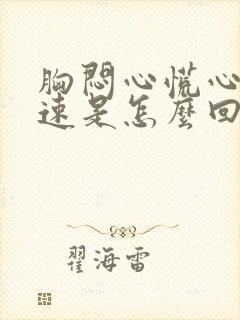 胸悶心慌心
速是怎麼回
翟海雷